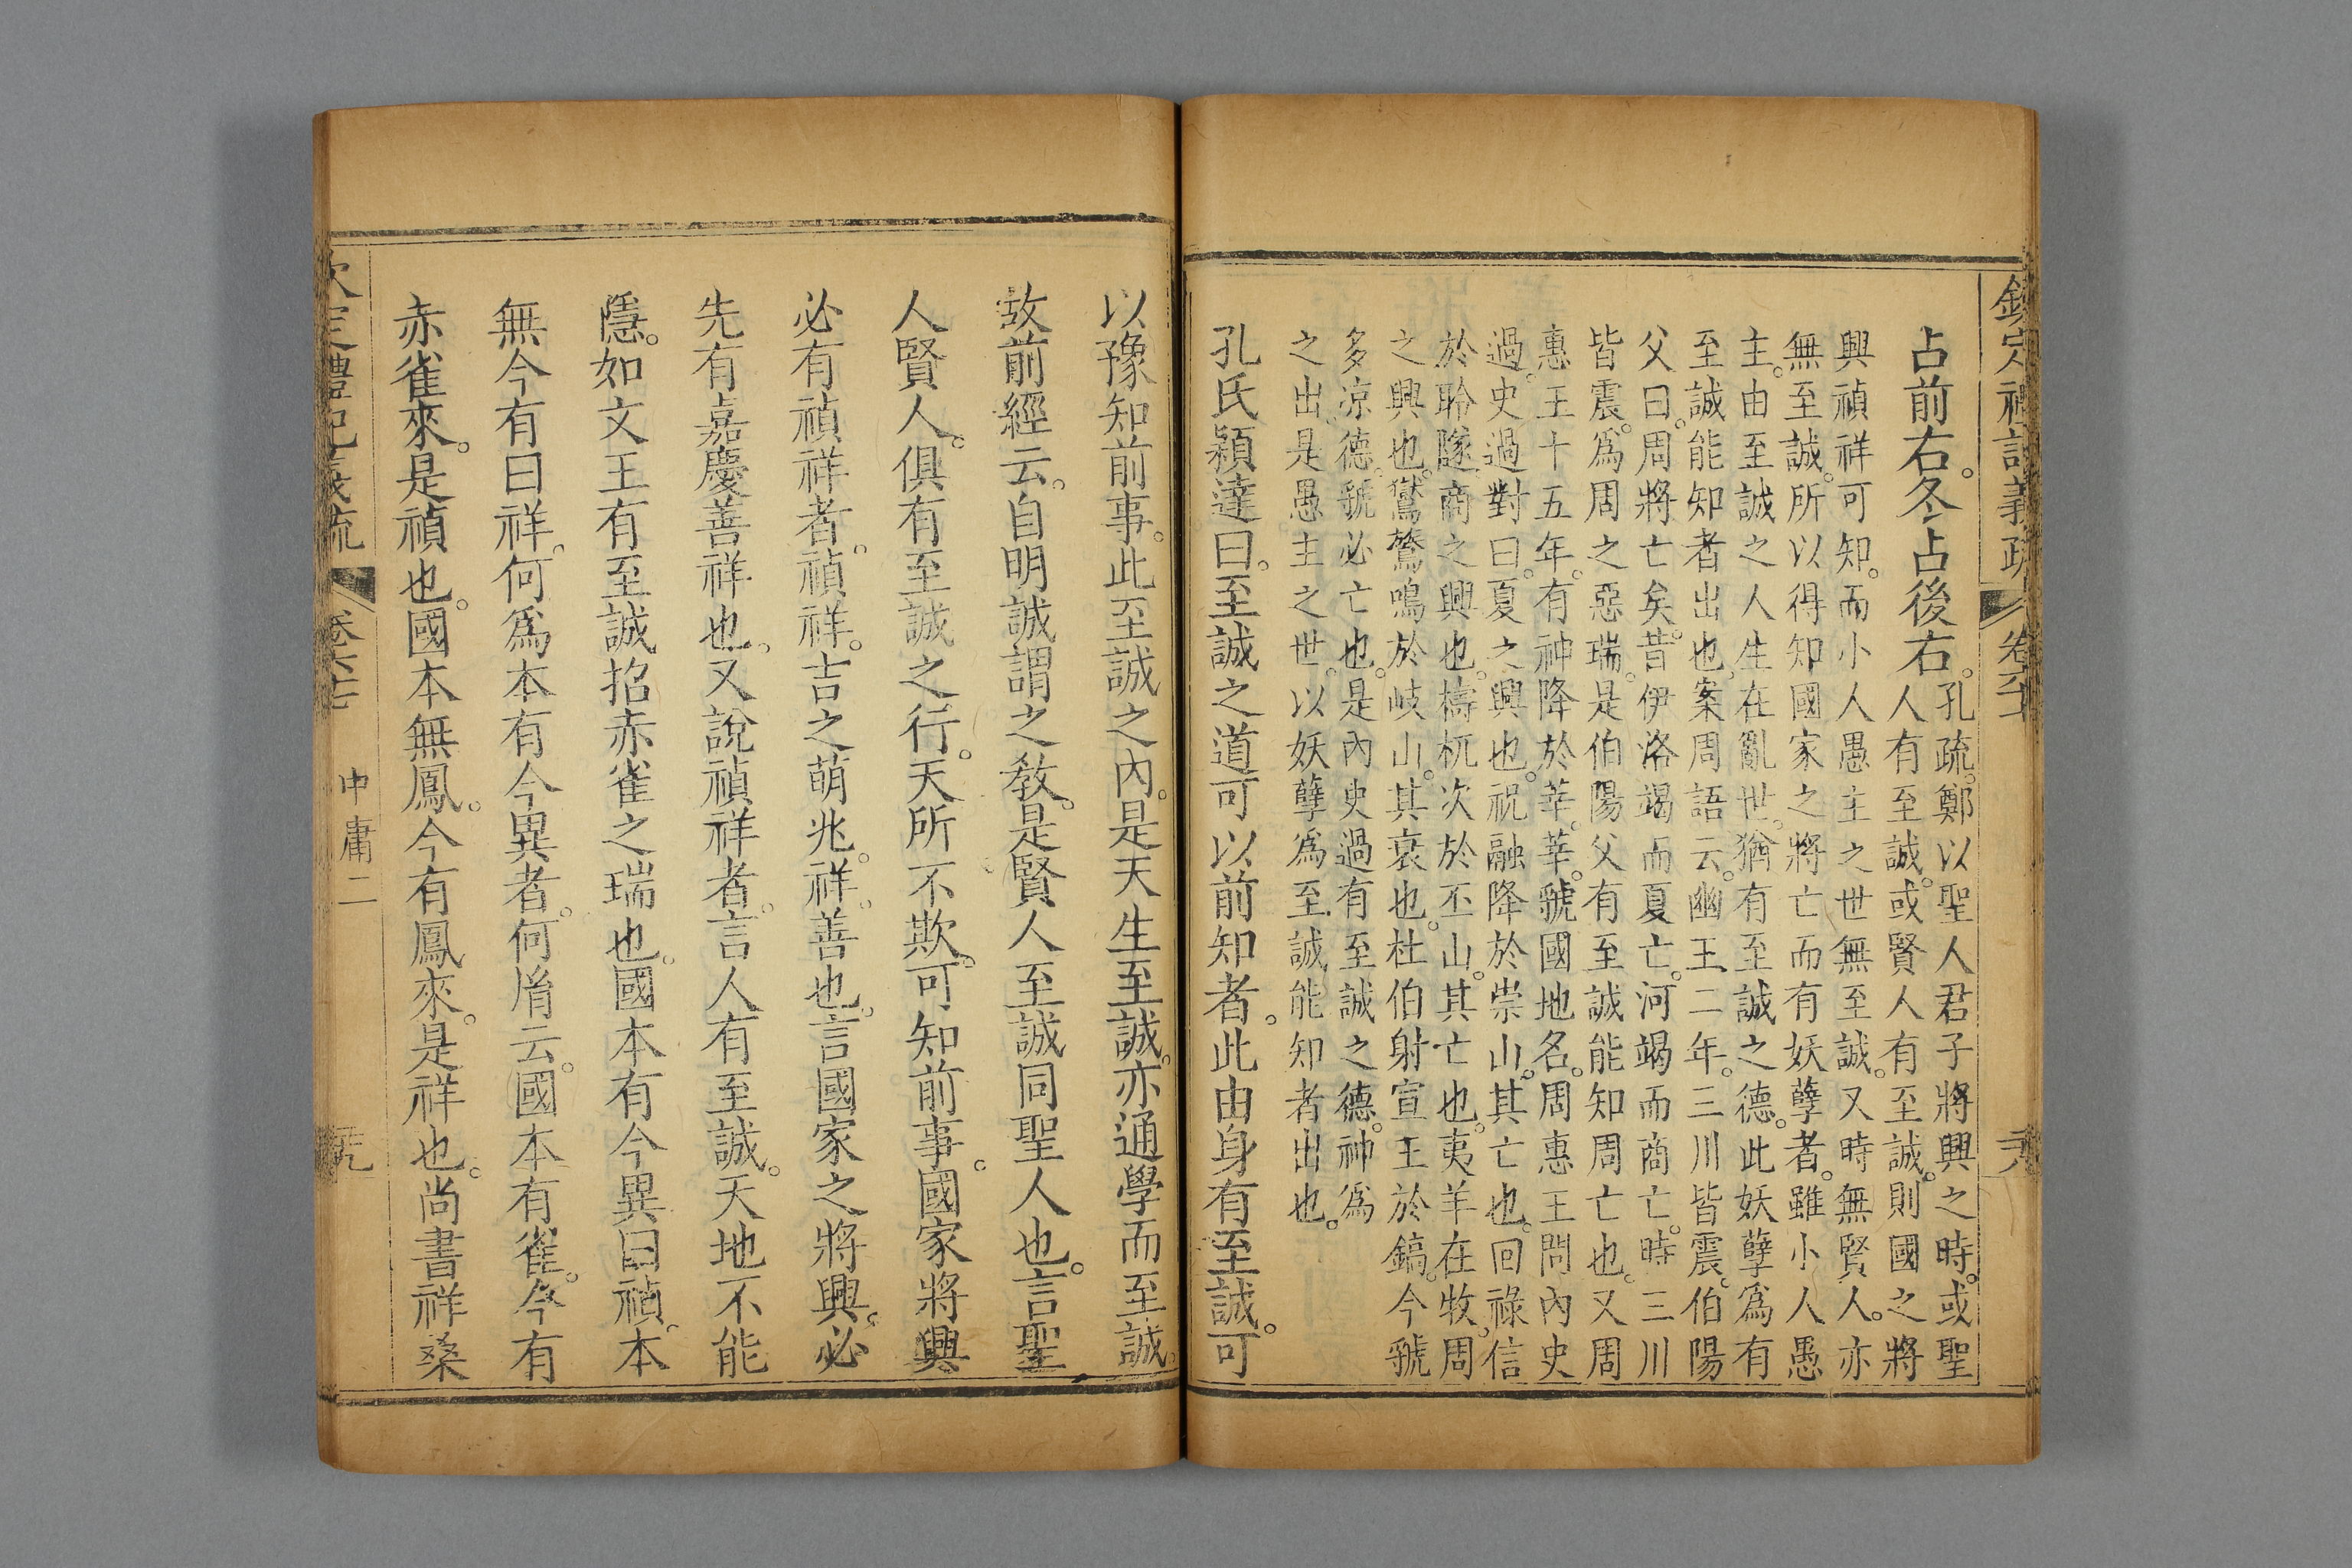 欽定禮記義疏 卷六十七
占前右。冬占後右。
孔疏。鄭以聖人君子將興之時。或聖
人有至誠。或賢人有至誠。則國之將
興禎祥可知。而小人愚主之世無至誠。又時無賢人。亦
無至誠。所以得知國家之將亡而有妖孽者。雖小人愚
主。由至誠之人生在亂世。猶有至誠之德。此妖孽爲有
至誠能知者出也。案周語云。幽王二年。三川皆震。伯陽
父曰。周將亡矣。昔伊洛竭而夏亡。河竭而商亡。時三川
皆震。爲周之惡瑞。是伯陽父有至誠能知周亡也。又周
惠王十五年。有神降於莘。莘。虢國地名。周惠王問內史
過。史過對曰。夏之興也。祝融降於崇山。其亡也。回祿信
於聆隧。商之興也。檮杌次於丕山。其亡也。夷羊在牧。周
之興也。鸑鷟鳴於岐山。其衰也。杜伯射宣王於鎬。今虢
多涼德。虢必亡也。是內史過有至誠之德。神爲
之出。是愚主之世。以妖孽爲至誠能知者出也。
孔氏穎達曰。至誠之道可以前知者。此由身有至誠。可
以豫知前事。此至誠之內。是天生至誠。亦通學而至誠。
故前經云。自明誠謂之敎。是賢人至誠同聖人也。言聖
人賢人。俱有至誠之行。天所不欺。可知前事。國家將興
必有禎祥者。禎祥。吉之萌兆。祥。善也。言國家之將興。必
先有嘉慶善祥也。又說禎祥者。言人有至誠。天地不能
隱。如文王有至誠招赤雀之瑞也。國本有今異曰禎。本
無今有曰祥。何爲本有今異者。何胤云。國本有雀。今有
赤雀來。是禎也。國本無鳳。今有鳳來。是祥也。尚書祥桑
欽定禮記義疏 卷六十七 中庸二